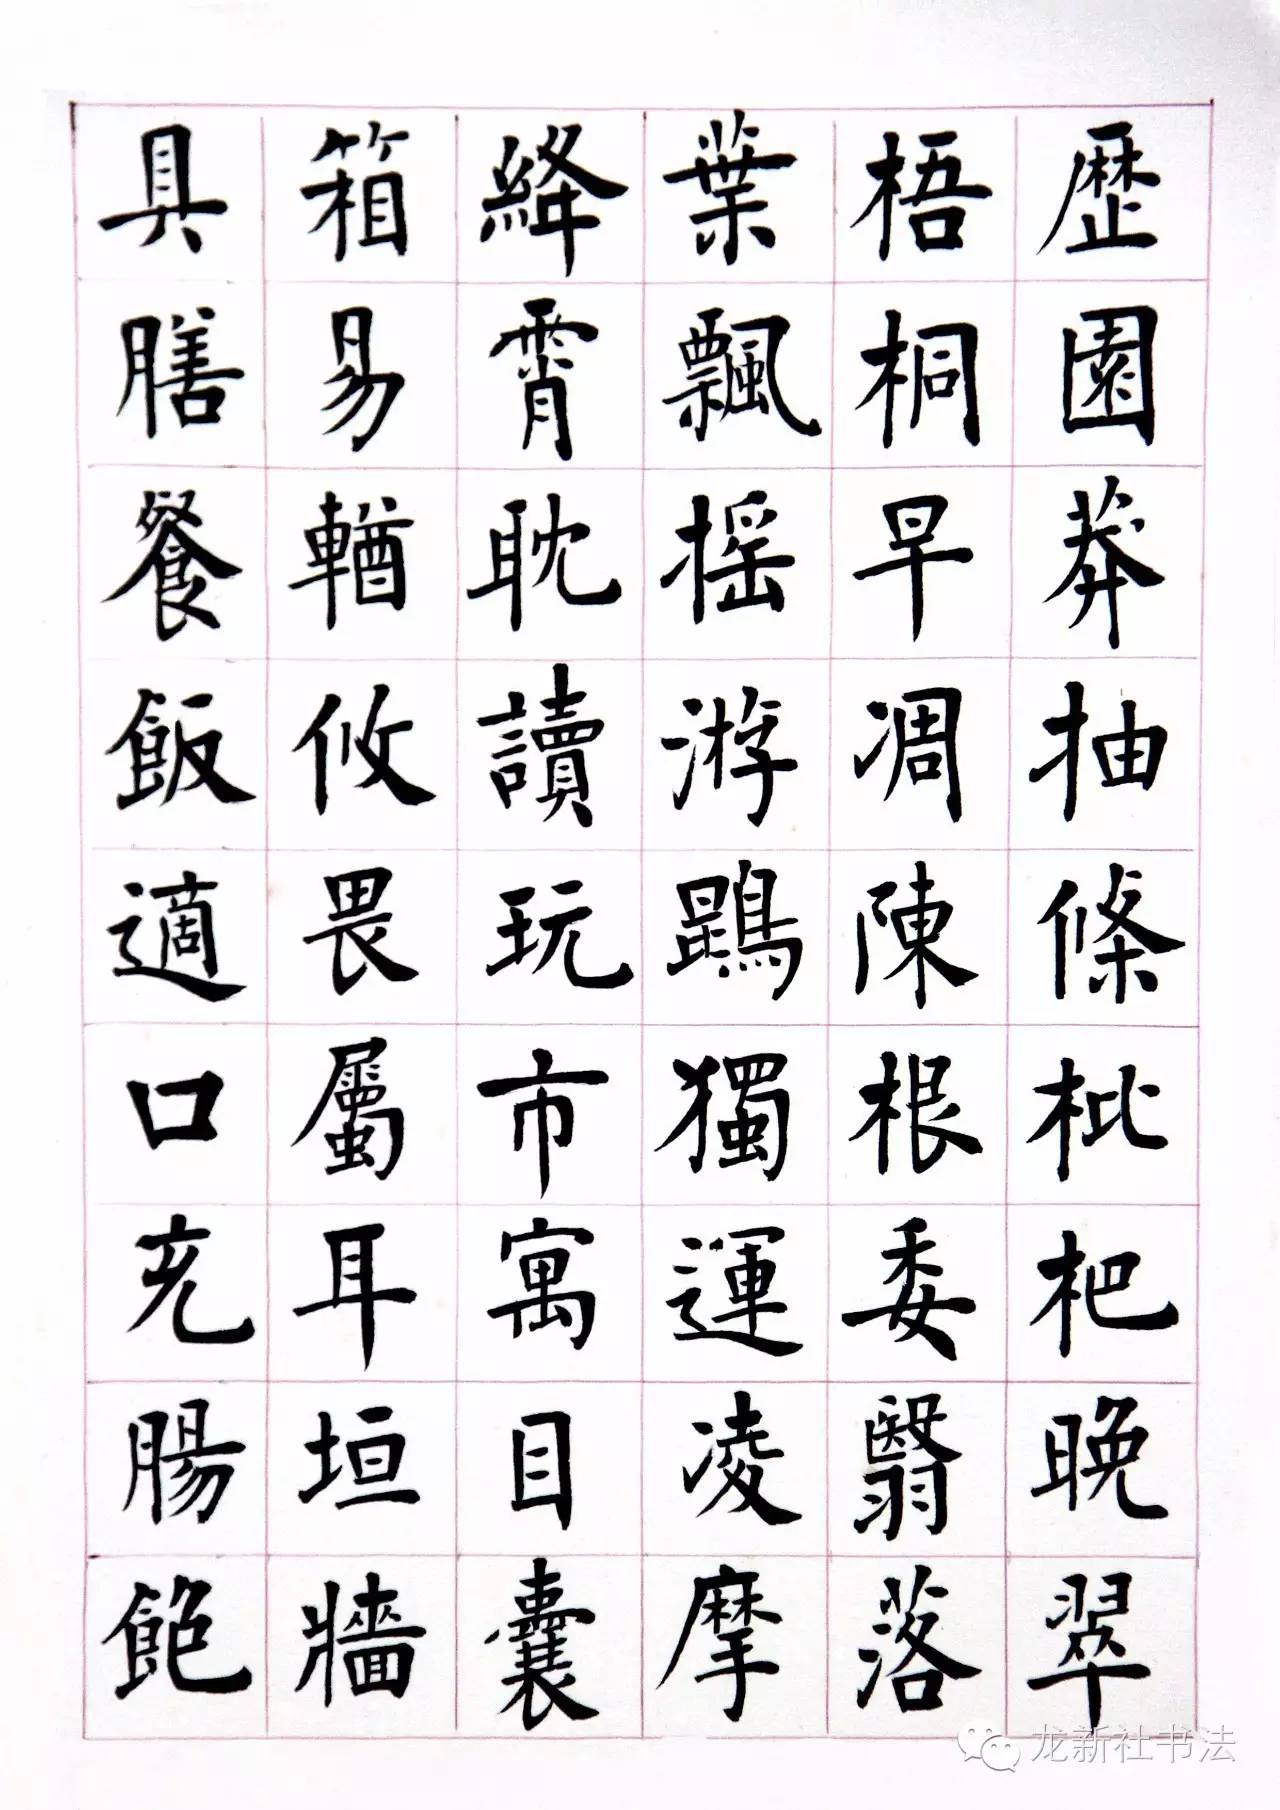 歷園莽抽條枇杷晚翠
梧桐早凋陳根委翳落
葉飄搖游鵾獨運凌摩
絳霄耽讀玩市寓目囊
箱易輶攸畏屬耳垣牆
具膳餐飯適口充腸飽
龙新社书法